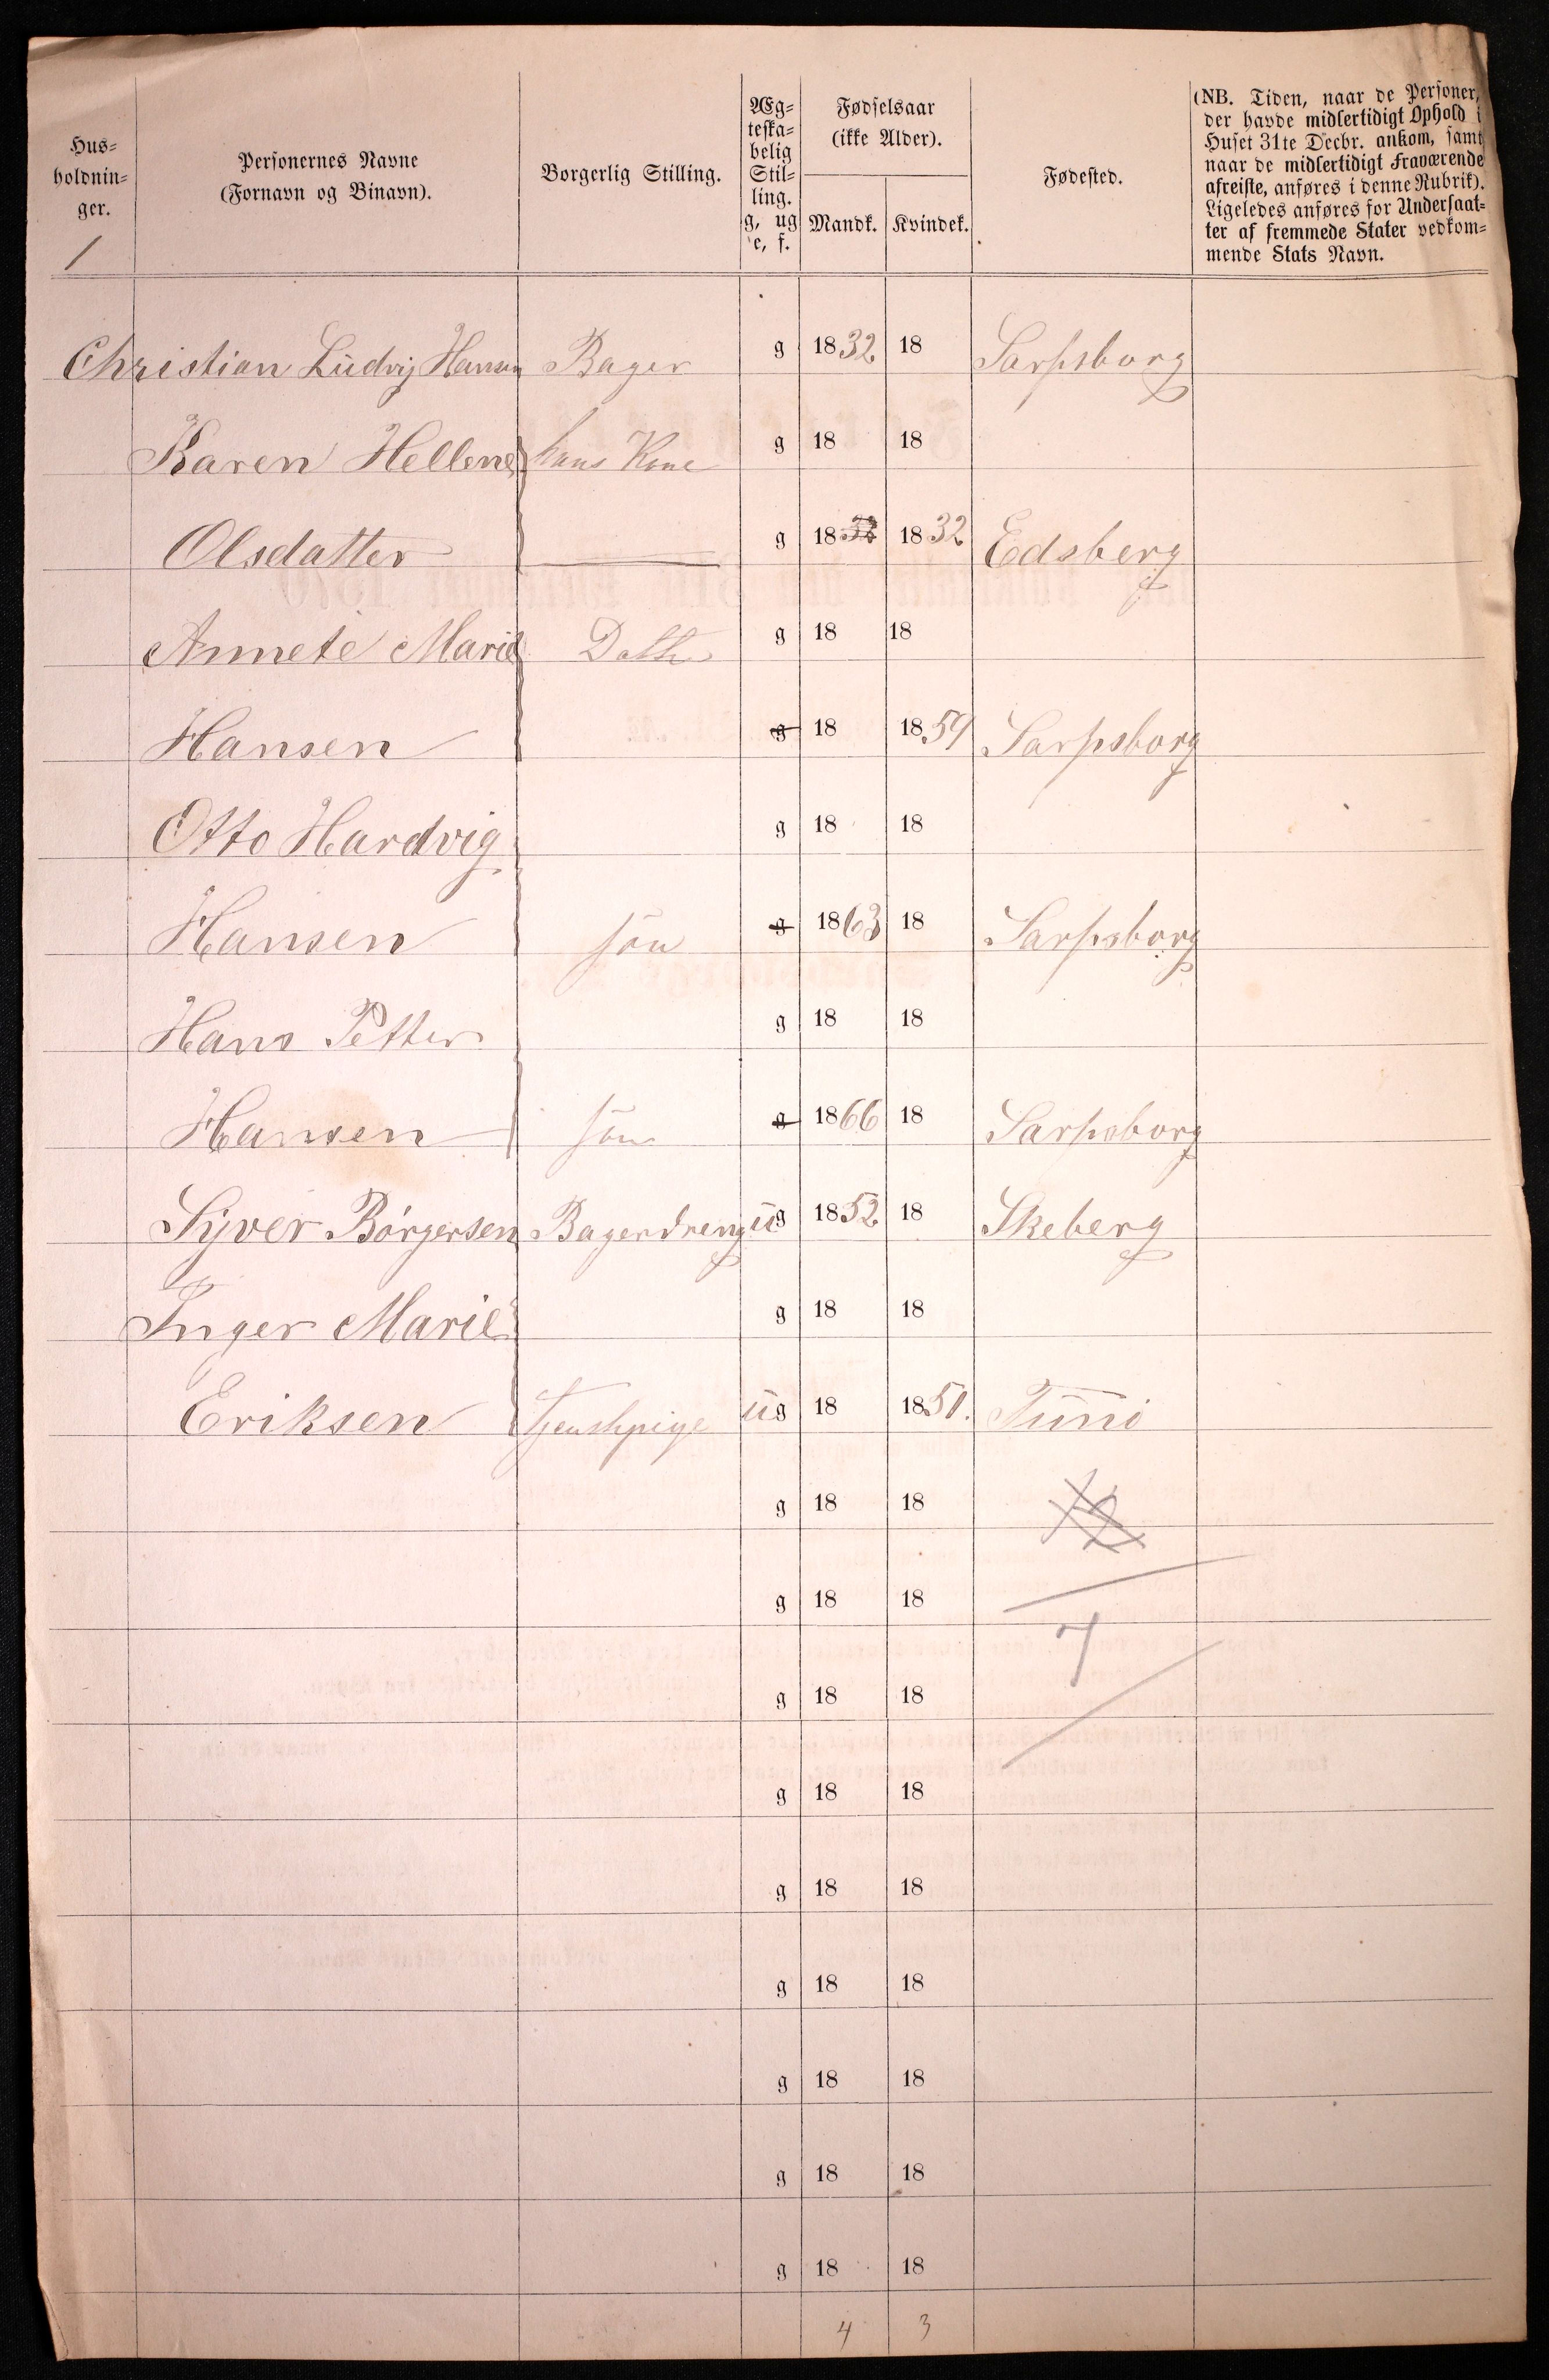 Hus=
holdnin=
ger.
1
Personernes Navne
(Fornavn og Binavn).
Borgerlig Stilling.
Æg=
teska=
belig
Stil=
ling.
g, ug
e, f.
Fødselsaar
(ikke Alder).
Mandk. Kvindek.
Fødested.
(NB. Tiden, naar de Personer,
der havde midlertidigt Ophold i
Huset 31te Decbr. ankom, samt
naar de midlertidigt Fraværende
afreiste, anføres i denne Rubrik).
Ligeledes anføres for Undersaat=
ter af fremmede Stater vedkom=
mende Stats Navn.
Christian Ludvig Hansen Bager g 1832 18 Sarpsborg
Karen Hellene hans Kone g 18 18
Olsdatter g 1832 1832 Edsberg
Annete Marie Datter g 18 18
Hansen g 18 1859 Sarpsborg
Otto Hardvig g 18 18
Hansen søn g 1863 18 Sarpsborg
Hans Petter g 18 18
Hansen søn g 1866 18 Sarpsborg
Syver Börgersen Bagerdreng ug 1852 18 Skeberg
Inger Marie g 18 18
Eriksen Tjenstpige ug 18 1851. Tunö
g 18 18 12
g 18 18
g 18 18 7
g 18 18
g 18 18
g 18 18
g 18 18
g 18 18
g 18 18
4 3